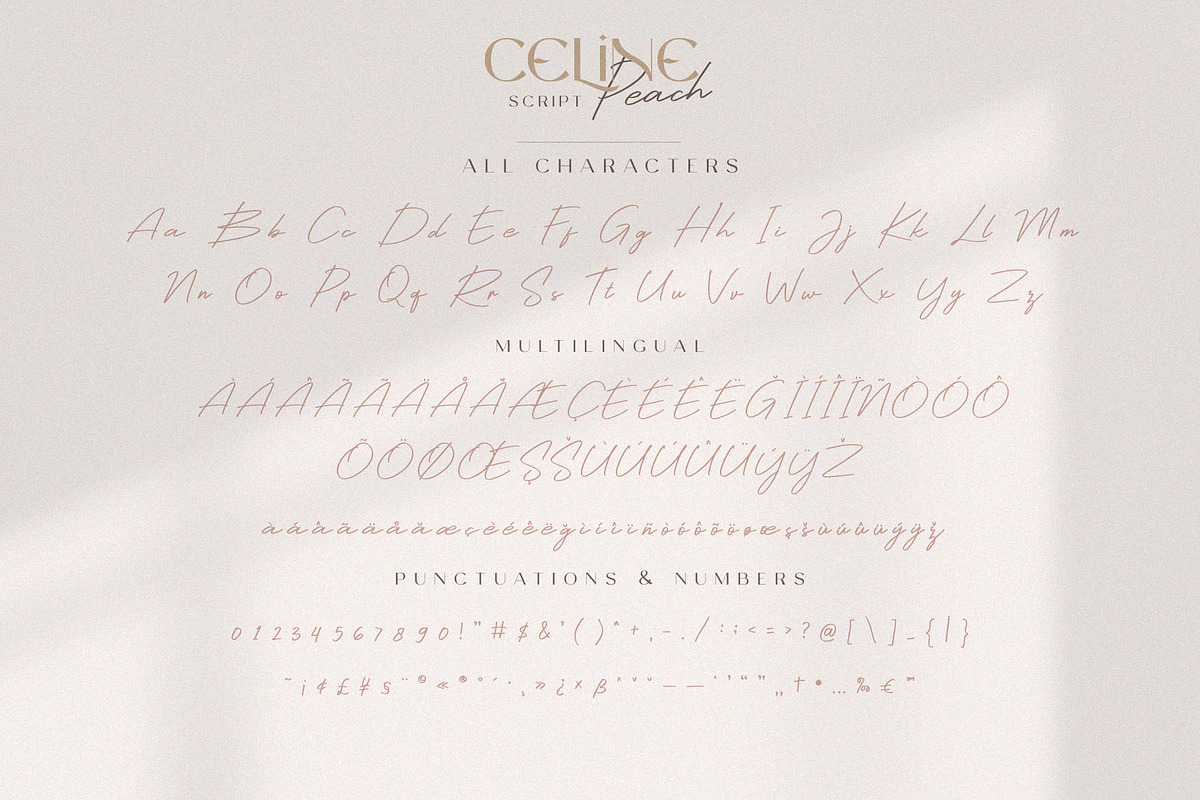 CELINE
SCRIPT Peach
ALL CHARACTERS
Aa Bb Cc Dd Ee Ff Gg Hh Ii Jj Kk Ll Mm
Nn Oo Pp Qq Rr Ss Tt Uu Vv Ww Xx Yy Zz
MULTILINGUAL
ÀÁÂÃÃÄÅǍÆÇÈÉÊËĞÌÍÎÏÑÒÓÔ
ÕÖØŒŞŠÙÚÚÛÜÝŸŽ
àáâãäåǎæçèéêëğìíîïñòóôõöøœşšùúûüýÿž
PUNCTUATIONS & NUMBERS
0 1 2 3 4 5 6 7 8 9 0 ! " # $ & ' ( ) * + , - . / : ; < = > ? @ [ \ ] _ { | }
~ ¡ ¢ £ ¥ § ¨ © « ® ° ´ · ¸ » ¿ × ß ˆ ˇ ˘ – — ‘ ’ “ ” „ † • … ‰ € ™